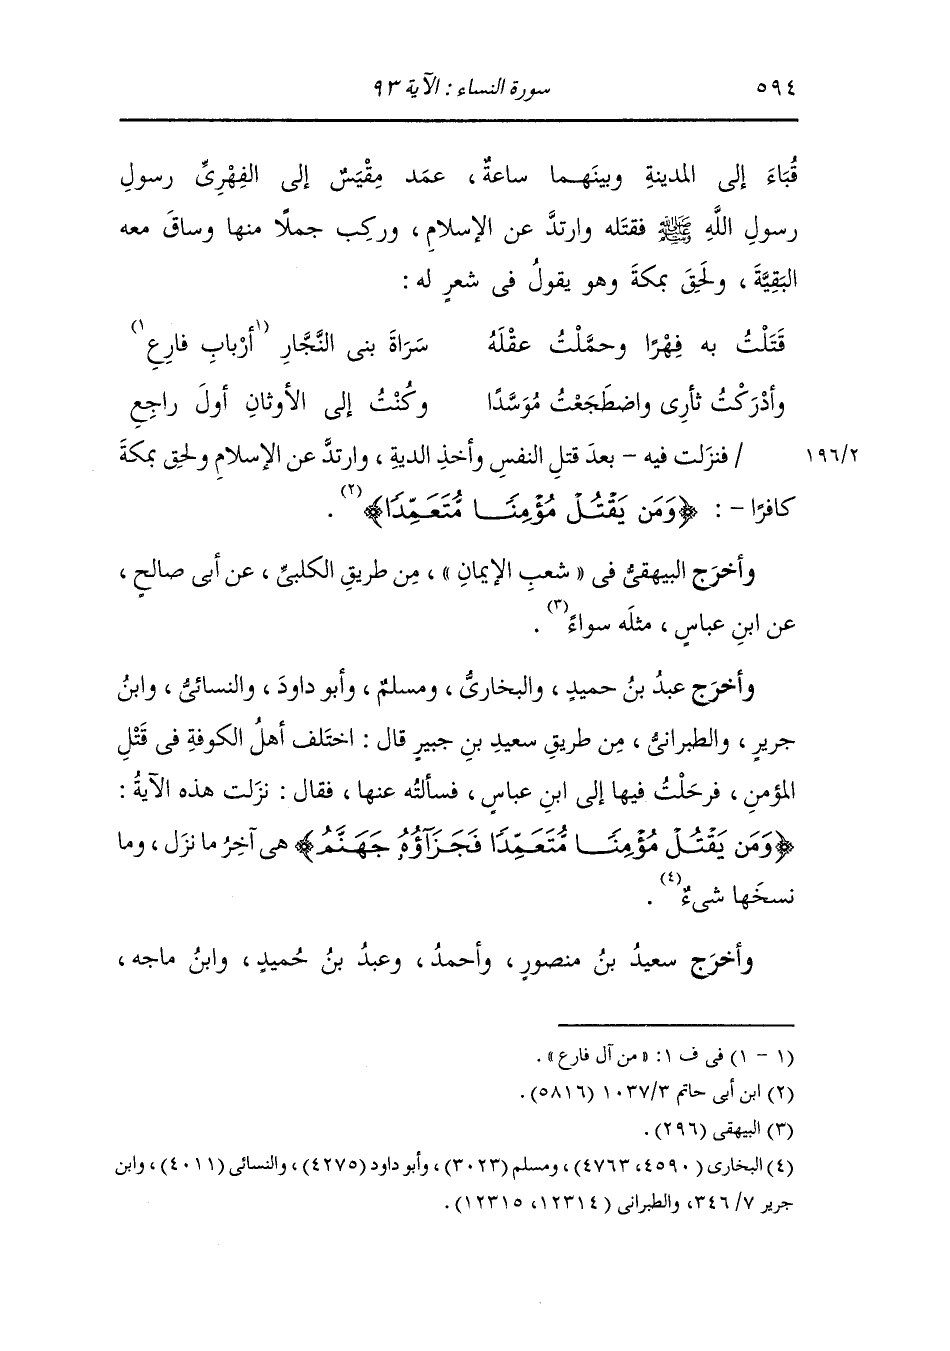 ٥٩٤ سورة النساء : الآية ٩٣
قُبَاءَ إلى المدينةِ وبينَهما ساعةٌ ، عمَد مِقْيَسٌ إلى الفِهْرِىِّ رسولِ
رسولِ اللَّهِ ﷺ فقتَله وارتدَّ عن الإسلامِ ، وركِب جملًا منها وساقَ معه
البَقِيَّةَ ، ولَحِقَ بمكةَ وهو يقولُ فى شعرٍ له :
قَتَلْتُ به فِهْرًا وحمَّلْتُ عقْلَهُ سَرَاةَ بنى النَّجَّارِ (١أرْبابِ فارِعِ١)
وأدْرَكْتُ ثأرِى واضطَجَعْتُ مُوَسَّدًا وكُنْتُ إلى الأوثانِ أولَ راجعِ
١٩٦/٢ / فنزَلت فيه - بعدَ قتلِ النفسِ وأخذِ الديةِ ، وارتدَّ عن الإسلامِ ولحِق بمكةَ
كافرًا - : ﴿وَمَن يَقْتُلْ مُؤْمِنًا مُّتَعَمِّدًا﴾(٢) .
وأخرَج البيهقىُّ فى « شعبِ الإيمانِ » ، مِن طريقِ الكلبىِّ ، عن أبى صالحٍ ،
عن ابنِ عباسٍ ، مثلَه سواءً(٣) .
وأخرَج عبدُ بنُ حميدٍ ، والبخارىُّ ، ومسلمٌ ، وأبو داودَ ، والنسائىُّ ، وابنُ
جريرٍ ، والطبرانىُّ ، مِن طريقِ سعيدِ بنِ جبيرٍ قال : اختَلف أهلُ الكوفةِ فى قَتْلِ
المؤمنِ ، فرحَلْتُ فيها إلى ابنِ عباسٍ ، فسألتُه عنها ، فقال : نزَلت هذه الآيةُ :
﴿وَمَن يَقْتُلْ مُؤْمِنًا مُّتَعَمِّدًا فَجَزَآؤُهُ جَهَنَّمُ﴾ هى آخِرُ ما نزَل ، وما
نسخَها شىءٌ(٤) .
وأخرَج سعيدُ بنُ منصورٍ ، وأحمدُ ، وعبدُ بنُ حُميدٍ ، وابنُ ماجه ،
(١ - ١) فى ف ١: « من آل فارع» .
(٢) ابن أبى حاتم ١٠٣٧/٣ (٥٨١٦) .
(٣) البيهقى (٢٩٦) .
(٤) البخارى (٤٥٩٠، ٤٧٦٣) ، ومسلم (٣٠٢٣) ، وأبو داود (٤٢٧٥) ، والنسائى (٤٠١١) ، وابن
جرير ٧/ ٣٤٦، والطبرانى (١٢٣١٤، ١٢٣١٥) .